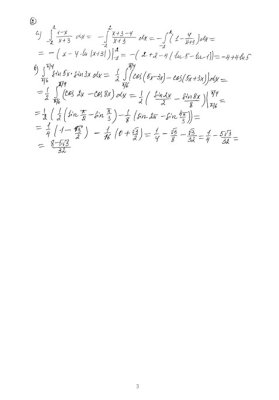 ②
б) ∫_{-2}^{2} (1-x)/(x+3) dx = -∫_{-2}^{2} (x+3-4)/(x+3) dx = -∫_{-2}^{2} (1 - 4/(x+3)) dx =
= -(x - 4·ln|x+3|)|_{-2}^{2} = -(2+2-4(ln 5 - ln 1)) = -4+4ln5
в) ∫_{π/6}^{π/4} sin 5x · sin 3x dx = 1/2 ∫_{π/6}^{π/4} (cos(5x-3x) - cos(5x+3x)) dx =
= 1/2 ∫_{π/6}^{π/4} (cos 2x - cos 8x) dx = 1/2 (sin 2x/2 - sin 8x/8)|_{π/6}^{π/4} =
= 1/2 (1/2 (sin π/2 - sin π/3) - 1/8 (sin 2π - sin 4π/3)) =
= 1/4 (1 - √3/2) - 1/16 (0 + √3/2) = 1/4 - √3/8 - √3/32 = 1/4 - 5√3/32 =
= (8-5√3)/32
3